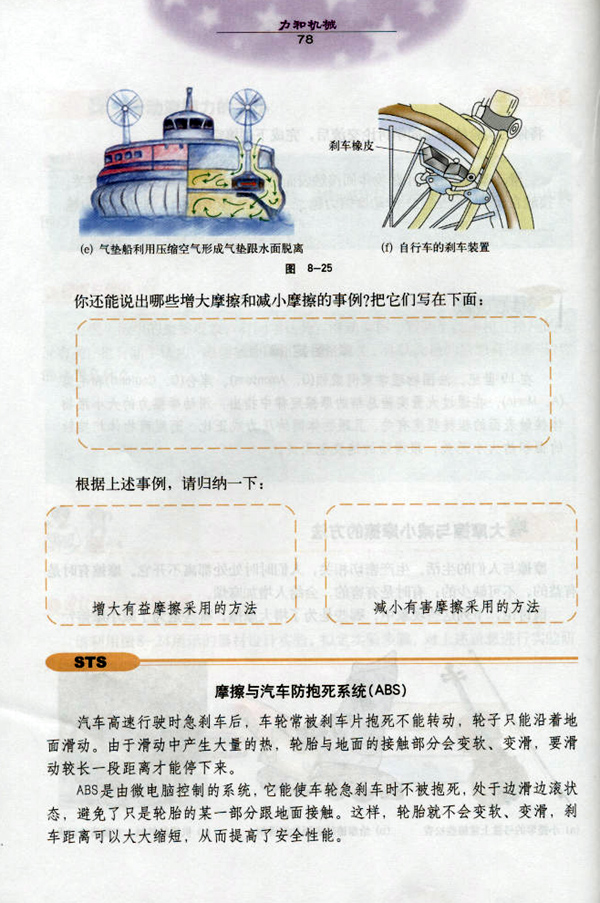 力和机械
78
刹车橡皮
(e) 气垫船利用压缩空气形成气垫跟水面脱离
(f) 自行车的刹车装置
图 8-25
你还能说出哪些增大摩擦和减小摩擦的事例?把它们写在下面:
根据上述事例，请归纳一下:
增大有益摩擦采用的方法
减小有害摩擦采用的方法
STS
摩擦与汽车防抱死系统(ABS)
汽车高速行驶时急刹车后，车轮常被刹车片抱死不能转动，轮子只能沿着地
面滑动。由于滑动中产生大量的热，轮胎与地面的接触部分会变软、变滑，要滑
动较长一段距离才能停下来。
ABS是由微电脑控制的系统，它能使车轮急刹车时不被抱死，处于边滑边滚状
态，避免了只是轮胎的某一部分跟地面接触。这样，轮胎就不会变软、变滑，刹
车距离可以大大缩短，从而提高了安全性能。